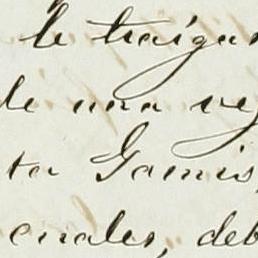 le traigan
de una vez
ta Gamis,
enales, deb